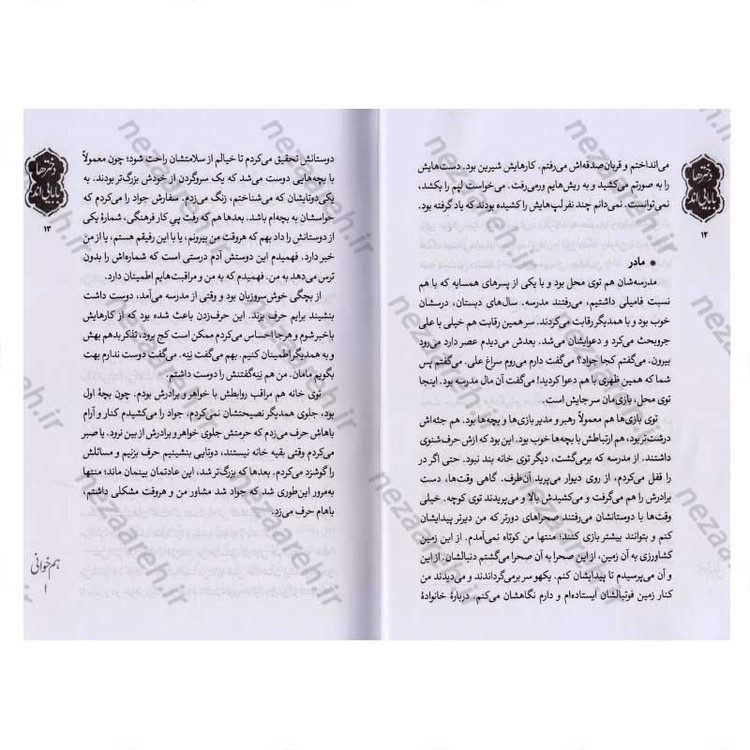 دخترها
بابایی‌اند
۱۲
می‌انداختم و قربان‌صدقه‌اش می‌رفتم. کارهایش شیرین بود. دست‌هایش
را به صورتم می‌کشید و به ریش‌هایم ورمی‌رفت. می‌خواست لپم را بکشد،
نمی‌توانست. نمی‌دانم چند نفر لپ‌هایش را کشیده بودند که یاد گرفته بود.
مادر
مدرسه‌شان هم توی محل بود و با یکی از پسرهای همسایه که با هم
نسبت فامیلی داشتیم، می‌رفتند مدرسه. سال‌های دبستان، درسشان
خوب بود و با همدیگر رقابت می‌کردند. سر همین رقابت هم خیلی با علی
جروبحث می‌کرد و دعوایشان می‌شد. بعدش می‌دیدم عصر دارد می‌رود
بیرون. می‌گفتم کجا جواد؟ می‌گفت دارم می‌روم سراغ علی. می‌گفتم پس
شما که همین ظهری با هم دعوا کردید! می‌گفت آن مال مدرسه بود. اینجا
توی محل، بازی‌مان سر جایش است.
توی بازی‌ها هم معمولاً رهبر و مدیر بازی‌ها و بچه‌ها بود. هم جثه‌اش
درشت‌تر بود، هم ارتباطش با بچه‌ها خوب بود. این بود که ازش حرف‌شنوی
داشتند. از مدرسه که برمی‌گشت، دیگر توی خانه بند نبود. حتی اگر در
را قفل می‌کردم، از روی دیوار می‌پرید آن‌طرف. گاهی وقت‌ها، دست
برادرش را هم می‌گرفت و می‌کشیدش بالا و می‌پریدند توی کوچه. خیلی
وقت‌ها با دوستانشان می‌رفتند صحراهای دورتر که من دیرتر پیدایشان
کنم و بتوانند بیشتر بازی کنند؛ منتها من کوتاه نمی‌آمدم. از این زمین
کشاورزی به آن زمین، از این صحرا به آن صحرا می‌گشتم دنبالشان. از این
و آن می‌پرسیدم تا پیدایشان کنم. یکهو سر برمی‌گرداندند و می‌دیدند من
کنار زمین فوتبالشان ایستاده‌ام و دارم نگاهشان می‌کنم. دربارهٔ خانوادهٔ
دخترها
بابایی‌اند
۱۳
دوستانش تحقیق می‌کردم تا خیالم از سلامتشان راحت شود؛ چون معمولاً
با بچه‌هایی دوست می‌شد که یک سروگردن از خودش بزرگ‌تر بودند. به
یکی‌دوتایشان که می‌شناختم، زنگ می‌زدم. سفارش جواد را می‌کردم که
حواسشان به بچه‌ام باشد. بعدها هم که رفت پی کار فرهنگی، شمارهٔ یکی
از دوستانش را داد بهم که هروقت من بیرونم، یا با این رفیقم هستم، یا از من
خبر دارد. فهمیدم این دوستش آدم درستی است که شماره‌اش را بدون
ترس می‌دهد به من. فهمیدم که به من و مراقبت‌هایم اطمینان دارد.
از بچگی خوش‌سروزبان بود و وقتی از مدرسه می‌آمد، دوست داشت
بنشیند برایم حرف بزند. این حرف‌زدن باعث شده بود که از کارهایش
باخبر شوم و هرجا احساس می‌کردم ممکن است کج برود، تذکر بدهم بهش
و به همدیگر اطمینان کنیم. بهم می‌گفت نِنِه. می‌گفت دوست ندارم بهت
بگویم مامان. من هم نِنِه‌گفتنش را دوست داشتم.
توی خانه هم مراقب روابطش با خواهر و برادرش بودم. چون بچهٔ اول
بود، جلوی همدیگر نصیحتشان نمی‌کردم. جواد را می‌کشیدم کنار و آرام
باهاش حرف می‌زدم که حرمتش جلوی خواهر و برادرش از بین نرود. یا صبر
می‌کردم وقتی بقیه خانه نیستند، دوتایی بنشینیم حرف بزنیم و مسائلش
را گوشزد می‌کردم. بعدها که بزرگ‌تر شد، این عادتمان بینمان ماند؛ منتها
به‌مرور این‌طوری شد که جواد شد مشاور من و هروقت مشکلی داشتم،
باهام حرف می‌زد.
هم‌خوانی
۱
nezaareh.ir